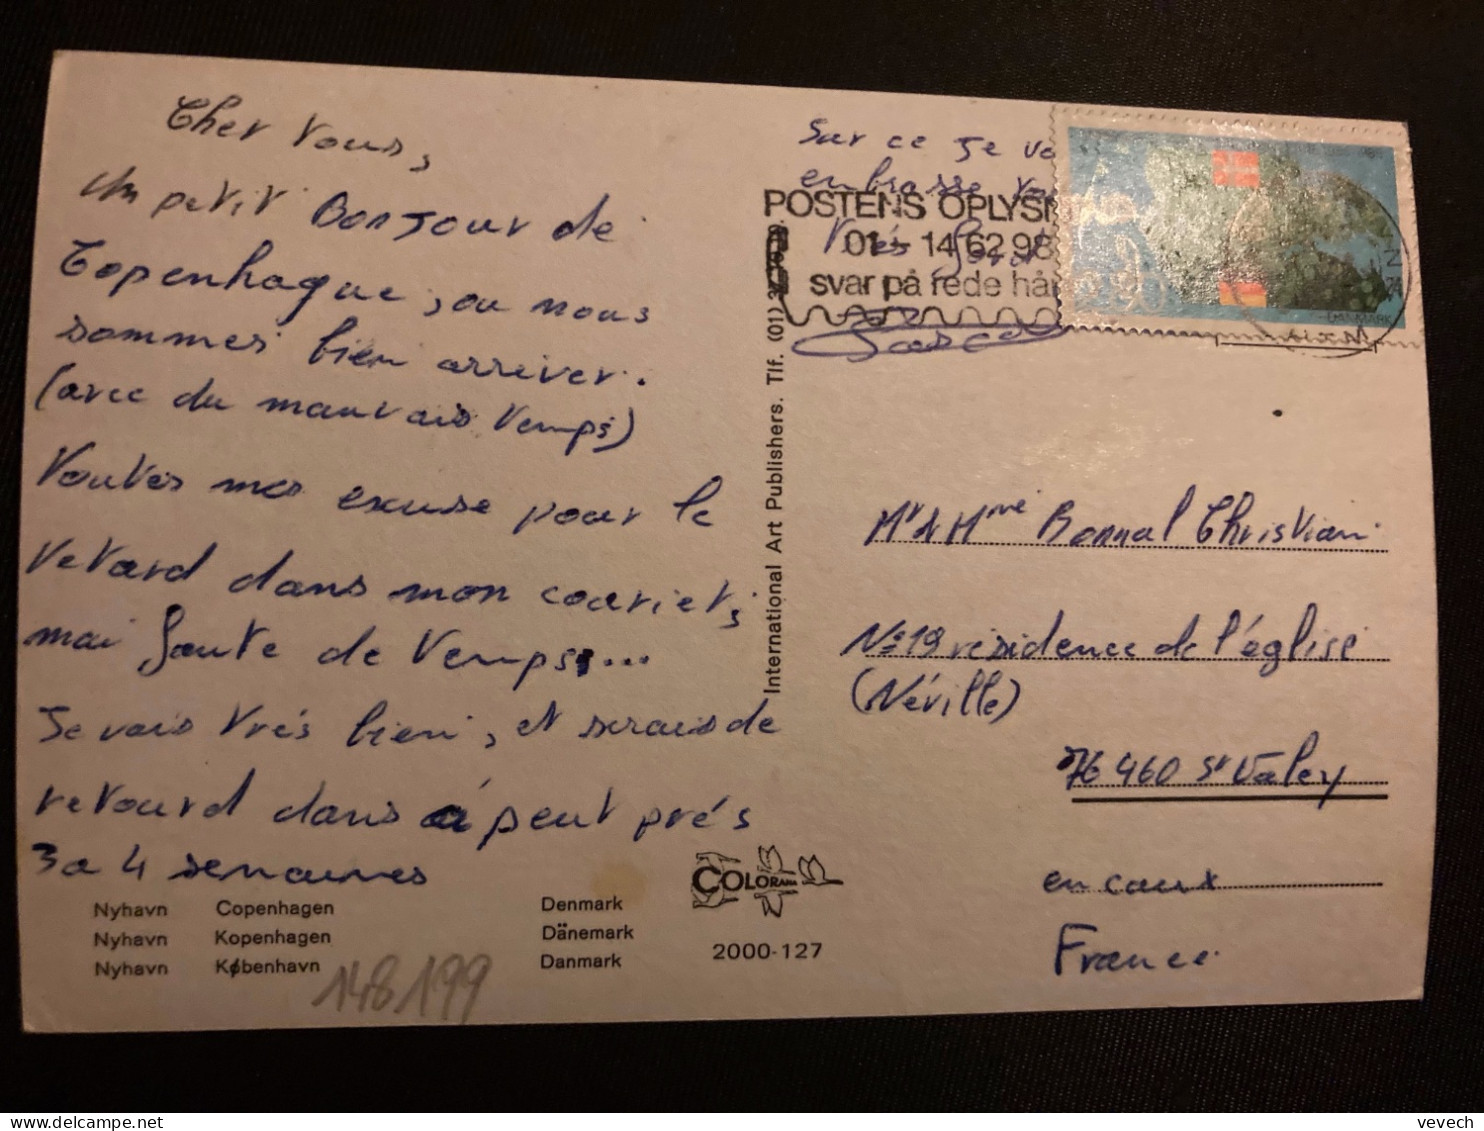 Cher vous,
un petit Bonjour de
Copenhague, ou nous
sommes bien arriver.
(avec du mauvais temps)
toutes mes excuse pour le
retard dans mon courier,
mai faute de temps...
Je vais très bien, et serais de
retourd dans à peut près
3 a 4 semaines
Nyhavn Copenhagen Denmark
Nyhavn Kopenhagen Dänemark
Nyhavn København Danmark
148199
COLORAMA
2000-127
International Art Publishers. Tlf. (01)
Sur ce je vo
embrasse
très
POSTENS OPLYSN
01 - 14 62 98
svar på rede hå
DANMARK
Mr & Mme Bonnal Christian
N° 19 résidence de l'église
(Néville)
76 460 St Valery
en caux
France
vevech